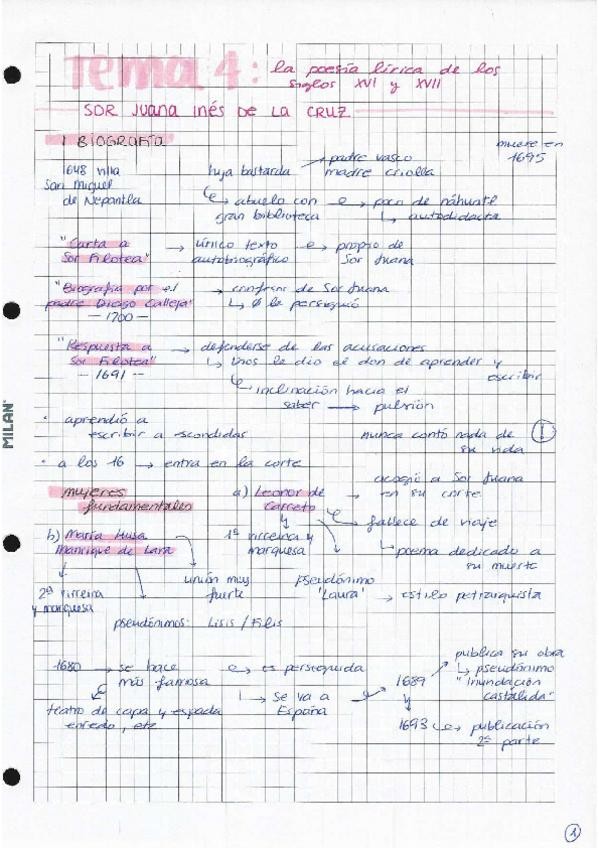 Tema 4: la poesía lírica de los
siglos XVI y XVII
SOR JUANA INÉS DE LA CRUZ
1 BIOGRAFÍA
muere en
1695
1648 villa
San Miguel
de Nepantla
hija bastarda → padre vasco
madre criolla
→ abuelo con
gran biblioteca
→ poco de náhuatl
↳ autodidacta
"Carta a
Sor Filotea"
→ único texto
autobiográfico
→ propio de
Sor Juana
"Biografía por el
padre Diego Calleja"
— 1700 —
→ confesor de Sor Juana
↳ Ø le persiguió
"Respuesta a
Sor Filotea"
— 1691 —
→ defenderse de las acusaciones
↳ Dios le dio el don de aprender y
escribir
↳ inclinación hacia el
saber → pulsión
· aprendió a
escribir a escondidas
nunca contó nada de
su vida
!
· a los 16 → entra en la corte
mujeres
fundamentales
a) Leonor de
Carreto
→ acogió a Sor Juana
en su corte
↳ fallece de viaje
↳ poema dedicado a
su muerte
1ª virreina y
marquesa
pseudónimo
'Laura' → estilo petrarquista
b) María Luisa
Manrique de Lara
2ª virreina
y marquesa
unión muy
fuerte
pseudónimos: Lisis / Filis
1680 → se hace
más famosa
teatro de capa y espada
enredo, etc
→ es perseguida
↳ se va a
España
→ 1689
publica su obra
↳ pseudónimo
"Inundación
castálida"
1693 → publicación
2ª parte
MILAN
1